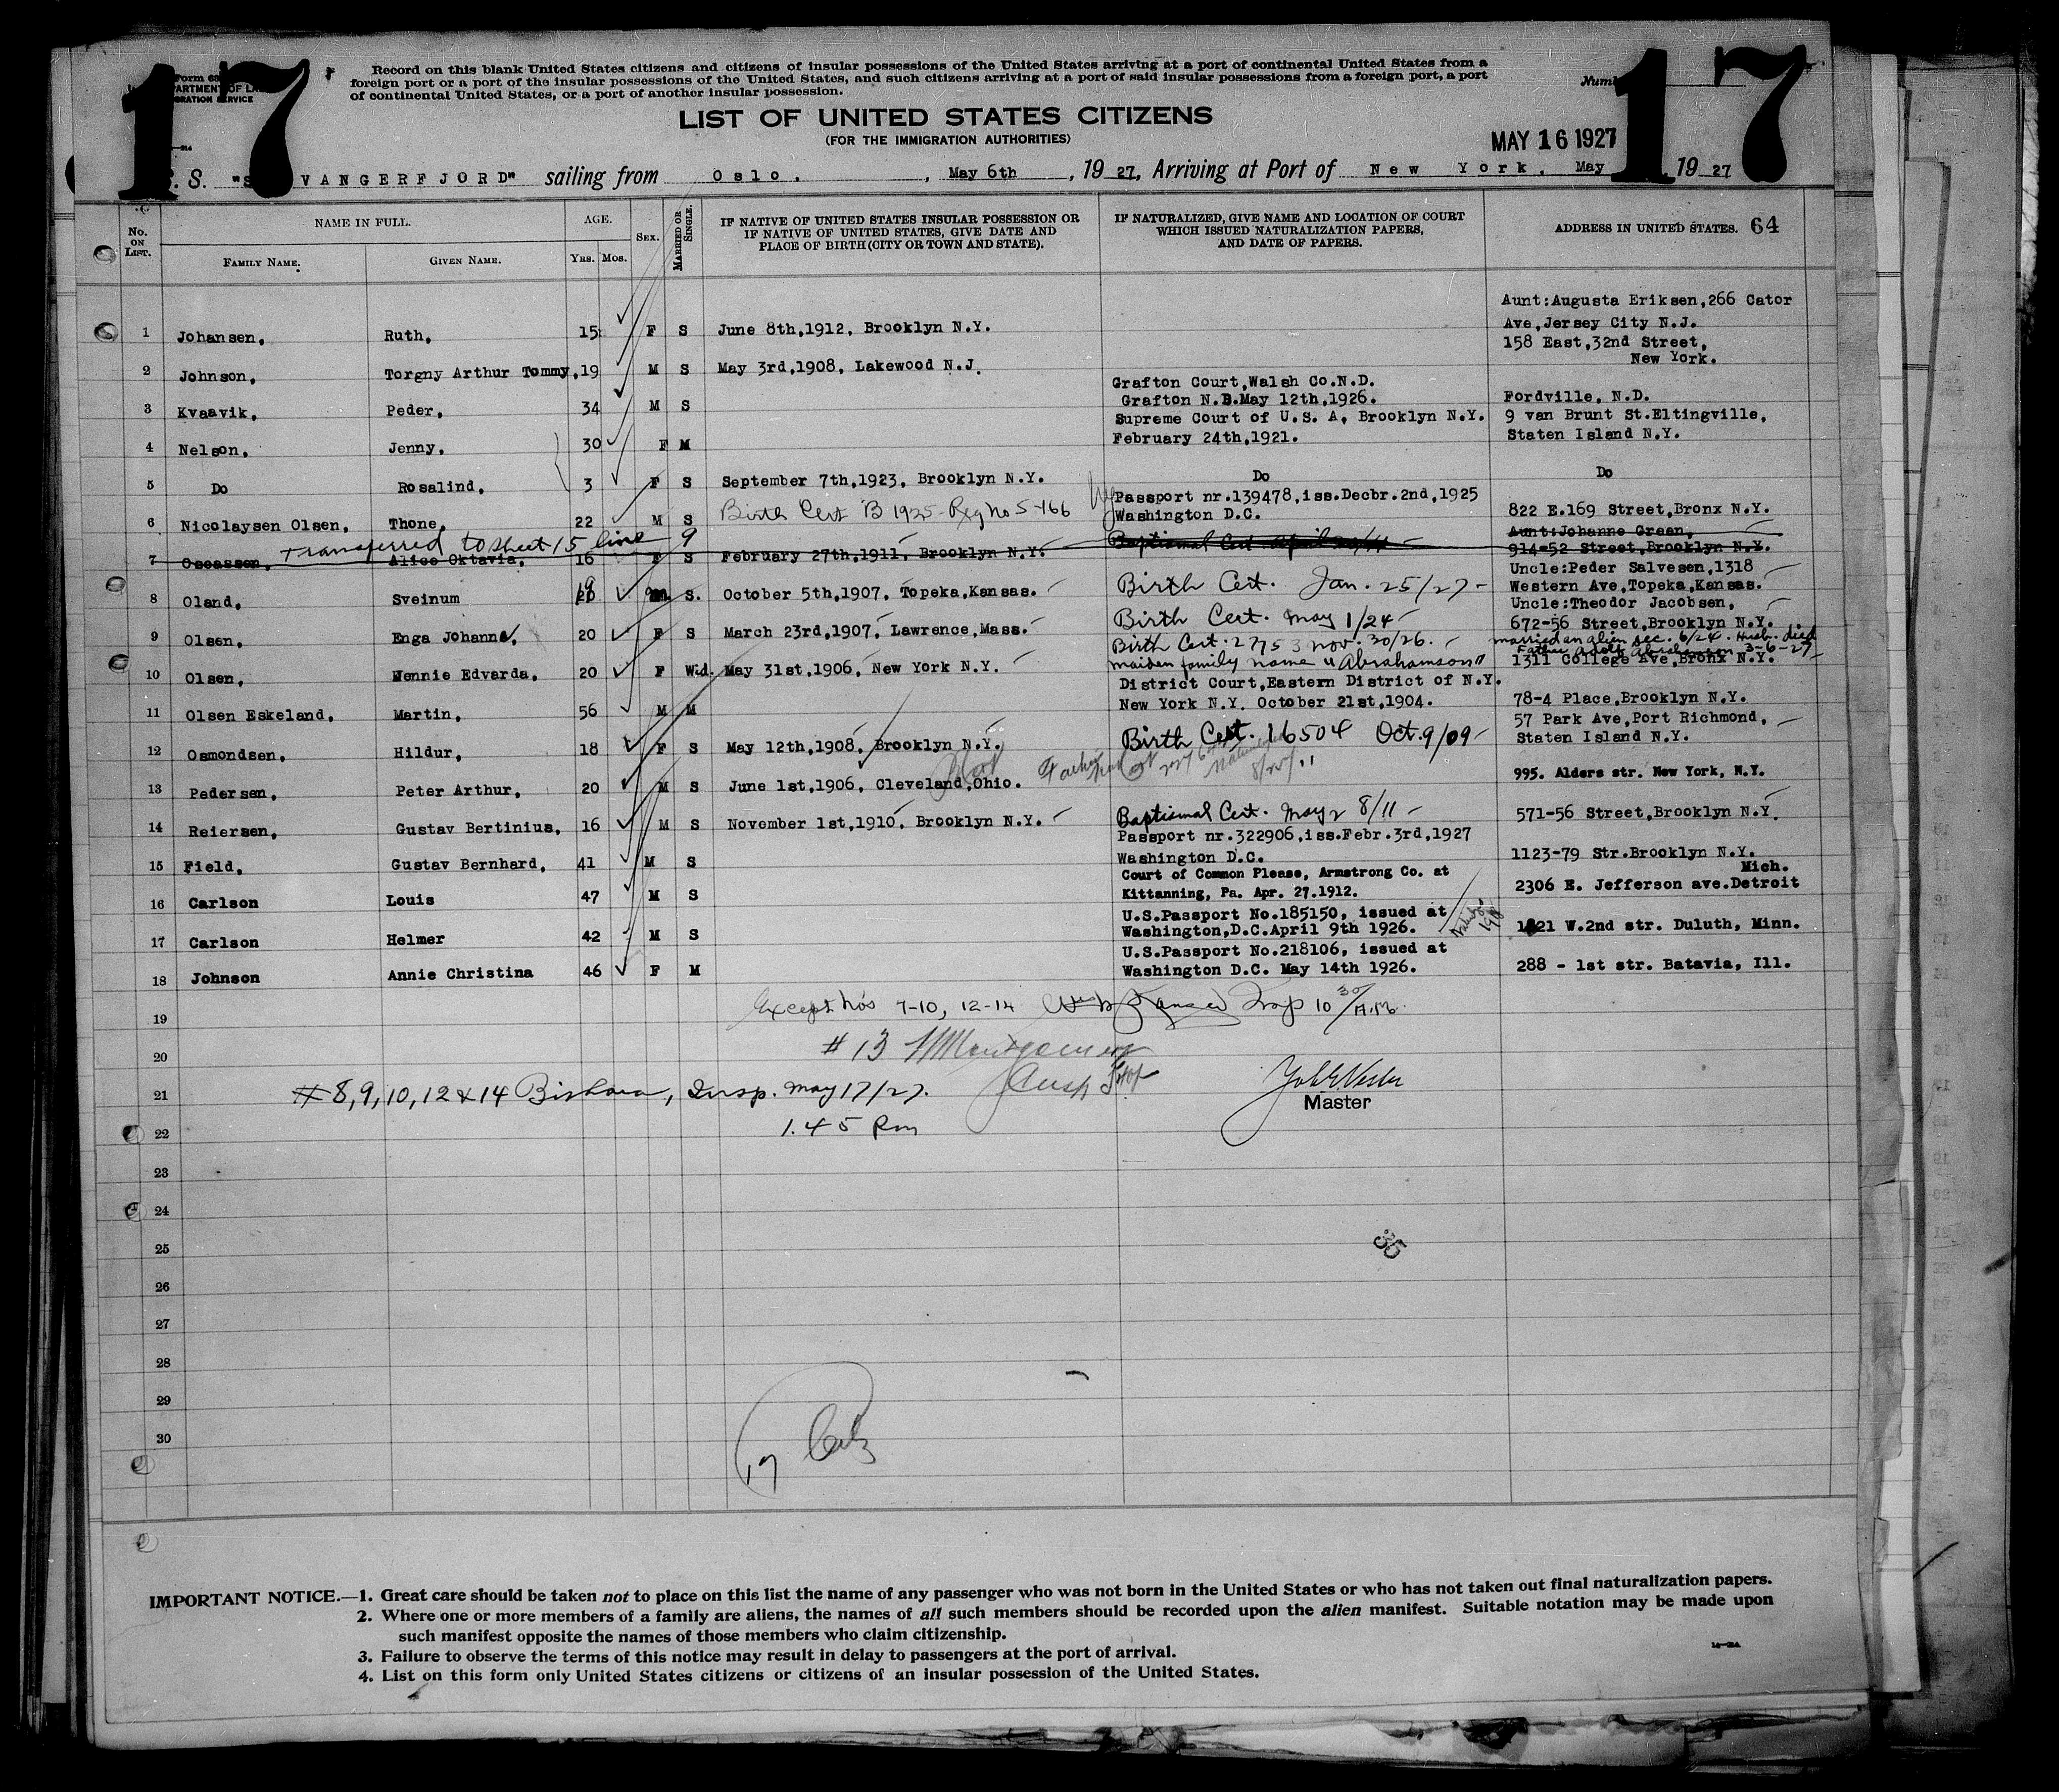 17
17
Form 63
PARTMENT OF LA
IGRATION SERVICE
Record on this blank United States citizens and citizens of insular possessions of the United States arriving at a port of continental United States from a
foreign port or a port of the insular possessions of the United States, and such citizens arriving at a port of said insular possessions from a foreign port, a port
of continental United States, or a port of another insular possession.
LIST OF UNITED STATES CITIZENS
(FOR THE IMMIGRATION AUTHORITIES)
MAY 16 1927
S. S. "S VANGERFJORD" sailing from Oslo. , May 6th , 19 27, Arriving at Port of New York. May 19 27
No. ON LIST. NAME IN FULL. AGE. SEX. MARRIED OR SINGLE. IF NATIVE OF UNITED STATES INSULAR POSSESSION OR IF NATIVE OF UNITED STATES, GIVE DATE AND PLACE OF BIRTH (CITY OR TOWN AND STATE). IF NATURALIZED, GIVE NAME AND LOCATION OF COURT WHICH ISSUED NATURALIZATION PAPERS, AND DATE OF PAPERS. ADDRESS IN UNITED STATES. 64
FAMILY NAME. GIVEN NAME. YRS. MOS.
Aunt:Augusta Eriksen,266 Cator
1 Johansen, Ruth, 15 F S June 8th,1912, Brooklyn N.Y. Ave,Jersey City N.J.
158 East,32nd Street,
New York.
2 Johnson, Torgny Arthur Tommy, 19 M S May 3rd,1908, Lakewood N.J.
Grafton Court,Walsh Co.N.D.
3 Kvaavik, Peder, 34 M S Grafton N.D.May 12th,1926. Fordville, N.D.
Supreme Court of U.S. A, Brooklyn N.Y. 9 van Brunt St.Eltingville,
4 Nelson, Jenny, 30 F M February 24th,1921. Staten Island N.Y.
5 Do Rosalind, 3 F S September 7th,1923, Brooklyn N.Y. Do Do
Passport nr.139478,iss.Decbr.2nd,1925
6 Nicolaysen Olsen, Thone, 22 M S Birth Cert B 1925 - Reg No 5-166 Washington D.C. 822 E.169 Street,Bronx N.Y.
Transferred to sheet 15 line 9
Aunt:Johanne Green,
7 Alice Oktavia, 16 F S February 27th,1911, Brooklyn N.Y. 914-52 Street,Brooklyn N.Y.
Uncle:Peder Salvesen,1318
19
8 Oland, Sveinum S. October 5th,1907, Topeka,Kansas. Birth Cert. Jan. 25/27 Western Ave,Topeka,Kansas.
Uncle:Theodor Jacobsen,
9 Olsen, Enga Johanne, 20 F S March 23rd,1907, Lawrence,Mass. Birth Cert. May 1/24 672-56 Street,Brooklyn N.Y.
Birth Cert. 27753 Nov. 30/26. married an alien Dec. 6/24. Husb. died 3-6-27
Father Adolf Abrahamson
10 Olsen, Nennie Edvarda, 20 F Wd. May 31st,1906, New York N.Y. maiden family name "Abrahamson" 1311 College Ave,Bronx N.Y.
District Court,Eastern District of N.Y.
11 Olsen Eskeland, Martin, 56 M M New York N.Y. October 21st,1904. 78-4 Place,Brooklyn N.Y.
57 Park Ave,Port Richmond,
12 Osmondsen, Hildur, 18 F S May 12th,1908, Brooklyn N.Y. Birth Cert. 16504 Oct.9/09 Staten Island N.Y.
13 Pedersen, Peter Arthur, 20 M S June 1st,1906, Cleveland,Ohio. Father 995. Alders str. New York, N.Y.
14 Reiersen, Gustav Bertinius, 16 M S November 1st,1910, Brooklyn N.Y. Baptismal Cert. May 28/11 571-56 Street,Brooklyn N.Y.
Passport nr.322906,iss.Febr.3rd,1927
15 Field, Gustav Bernhard, 41 M S Washington D.C. 1123-79 Str.Brooklyn N.Y.
Court of Common Please, Armstrong Co. at Mich.
16 Carlson Louis 47 M S Kittanning, Pa. Apr. 27.1912. 2306 E. Jefferson ave.Detroit
U.S.Passport No.185150, issued at
17 Carlson Helmer 42 M S Washington,D.C.April 9th 1926. 1821 W.2nd str. Duluth, Minn.
U.S.Passport No.218106, issued at
18 Johnson Annie Christina 46 F M Washington D.C. May 14th 1926. 288 - 1st str. Batavia, Ill.
19 Except No's 7-10, 12-14 Insp 10 30/A.M.
20 # 13 Montgomery
Insp
21 # 8,9,10,12 & 14 Insp. May 17/27.
Master
1.45 Pm
22
23
24
25
35
26
27
28
29
30
17
IMPORTANT NOTICE.—1. Great care should be taken not to place on this list the name of any passenger who was not born in the United States or who has not taken out final naturalization papers.
2. Where one or more members of a family are aliens, the names of all such members should be recorded upon the alien manifest. Suitable notation may be made upon
such manifest opposite the names of those members who claim citizenship.
3. Failure to observe the terms of this notice may result in delay to passengers at the port of arrival.
4. List on this form only United States citizens or citizens of an insular possession of the United States.